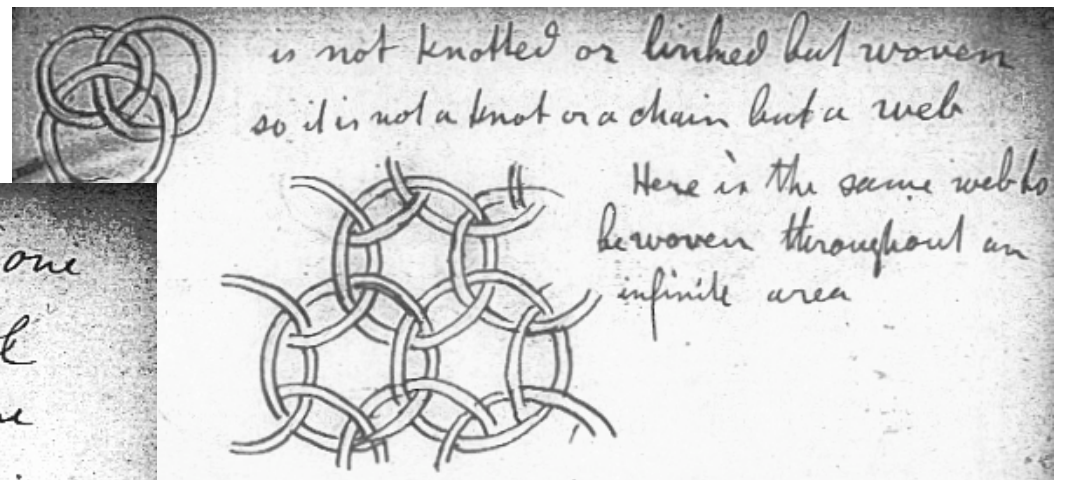 is not knotted or linked but woven
so it is not a knot or a chain but a web
Here is the same web to
be woven throughout an
infinite area
one